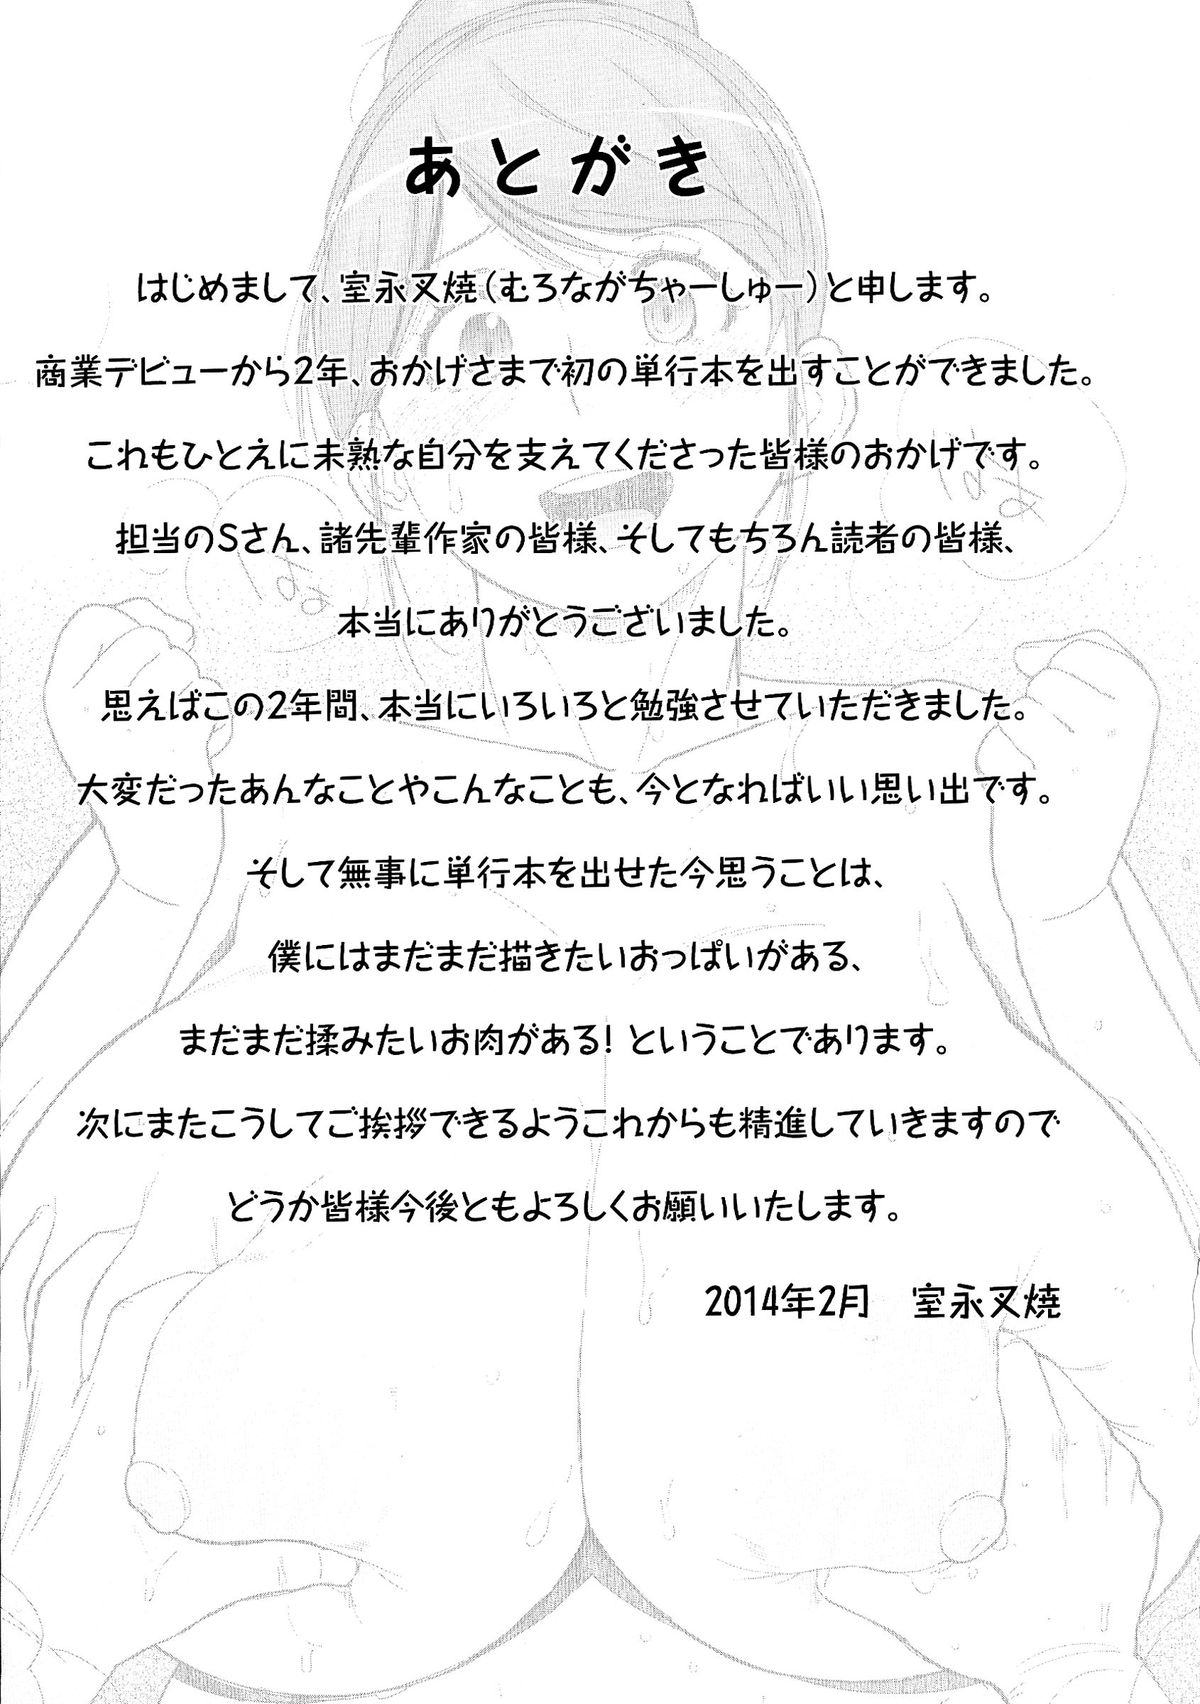 あとがき
はじめまして、室永叉焼（むろながちゃーしゅー）と申します。
商業デビューから2年、おかげさまで初の単行本を出すことができました。
これもひとえに未熟な自分を支えてくださった皆様のおかげです。
担当のSさん、諸先輩作家の皆様、そしてもちろん読者の皆様、
本当にありがとうございました。
思えばこの2年間、本当にいろいろと勉強させていただきました。
大変だったあんなことやこんなことも、今となればいい思い出です。
そして無事に単行本を出せた今思うことは、
僕にはまだまだ描きたいおっぱいがある、
まだまだ揉みたいお肉がある！ということであります。
次にまたこうしてご挨拶できるようこれからも精進していきますので
どうか皆様今後ともよろしくお願いいたします。
2014年2月　室永叉焼